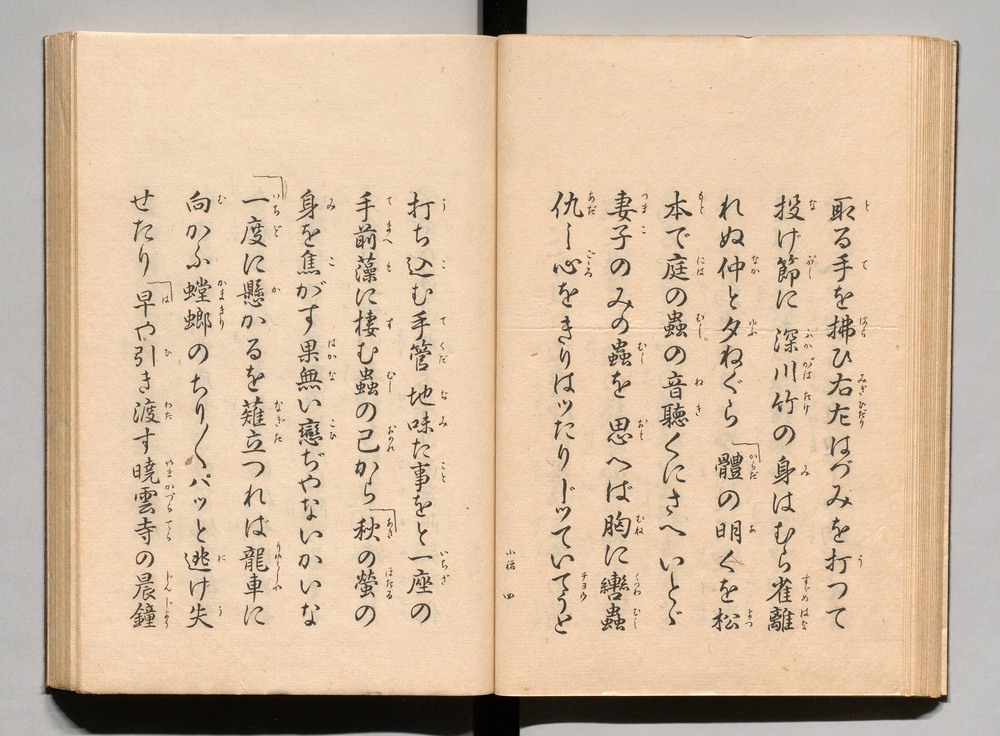 取る手を拂ひ右左はづみを打つて
投げ節に 深川竹の身はむら雀離
れぬ仲と夕ねぐら「體の明くを松
本で庭の蟲の音聽くにさへいとゞ
妻子のみの蟲を 思へば胸に轡蟲
仇し心をきりはッたりドッていてうと
小稻 四
打ち込む手管 地味た事をと一座の
手前藻に棲む蟲の己から「秋の螢の
身を焦がす果無い戀ぢやないかいな
「一度に懸かるを薙立つれば龍車に
向かふ螳螂のちり〳〵パッと逃け失
せたり「早や引き渡す曉雲寺の晨鐘